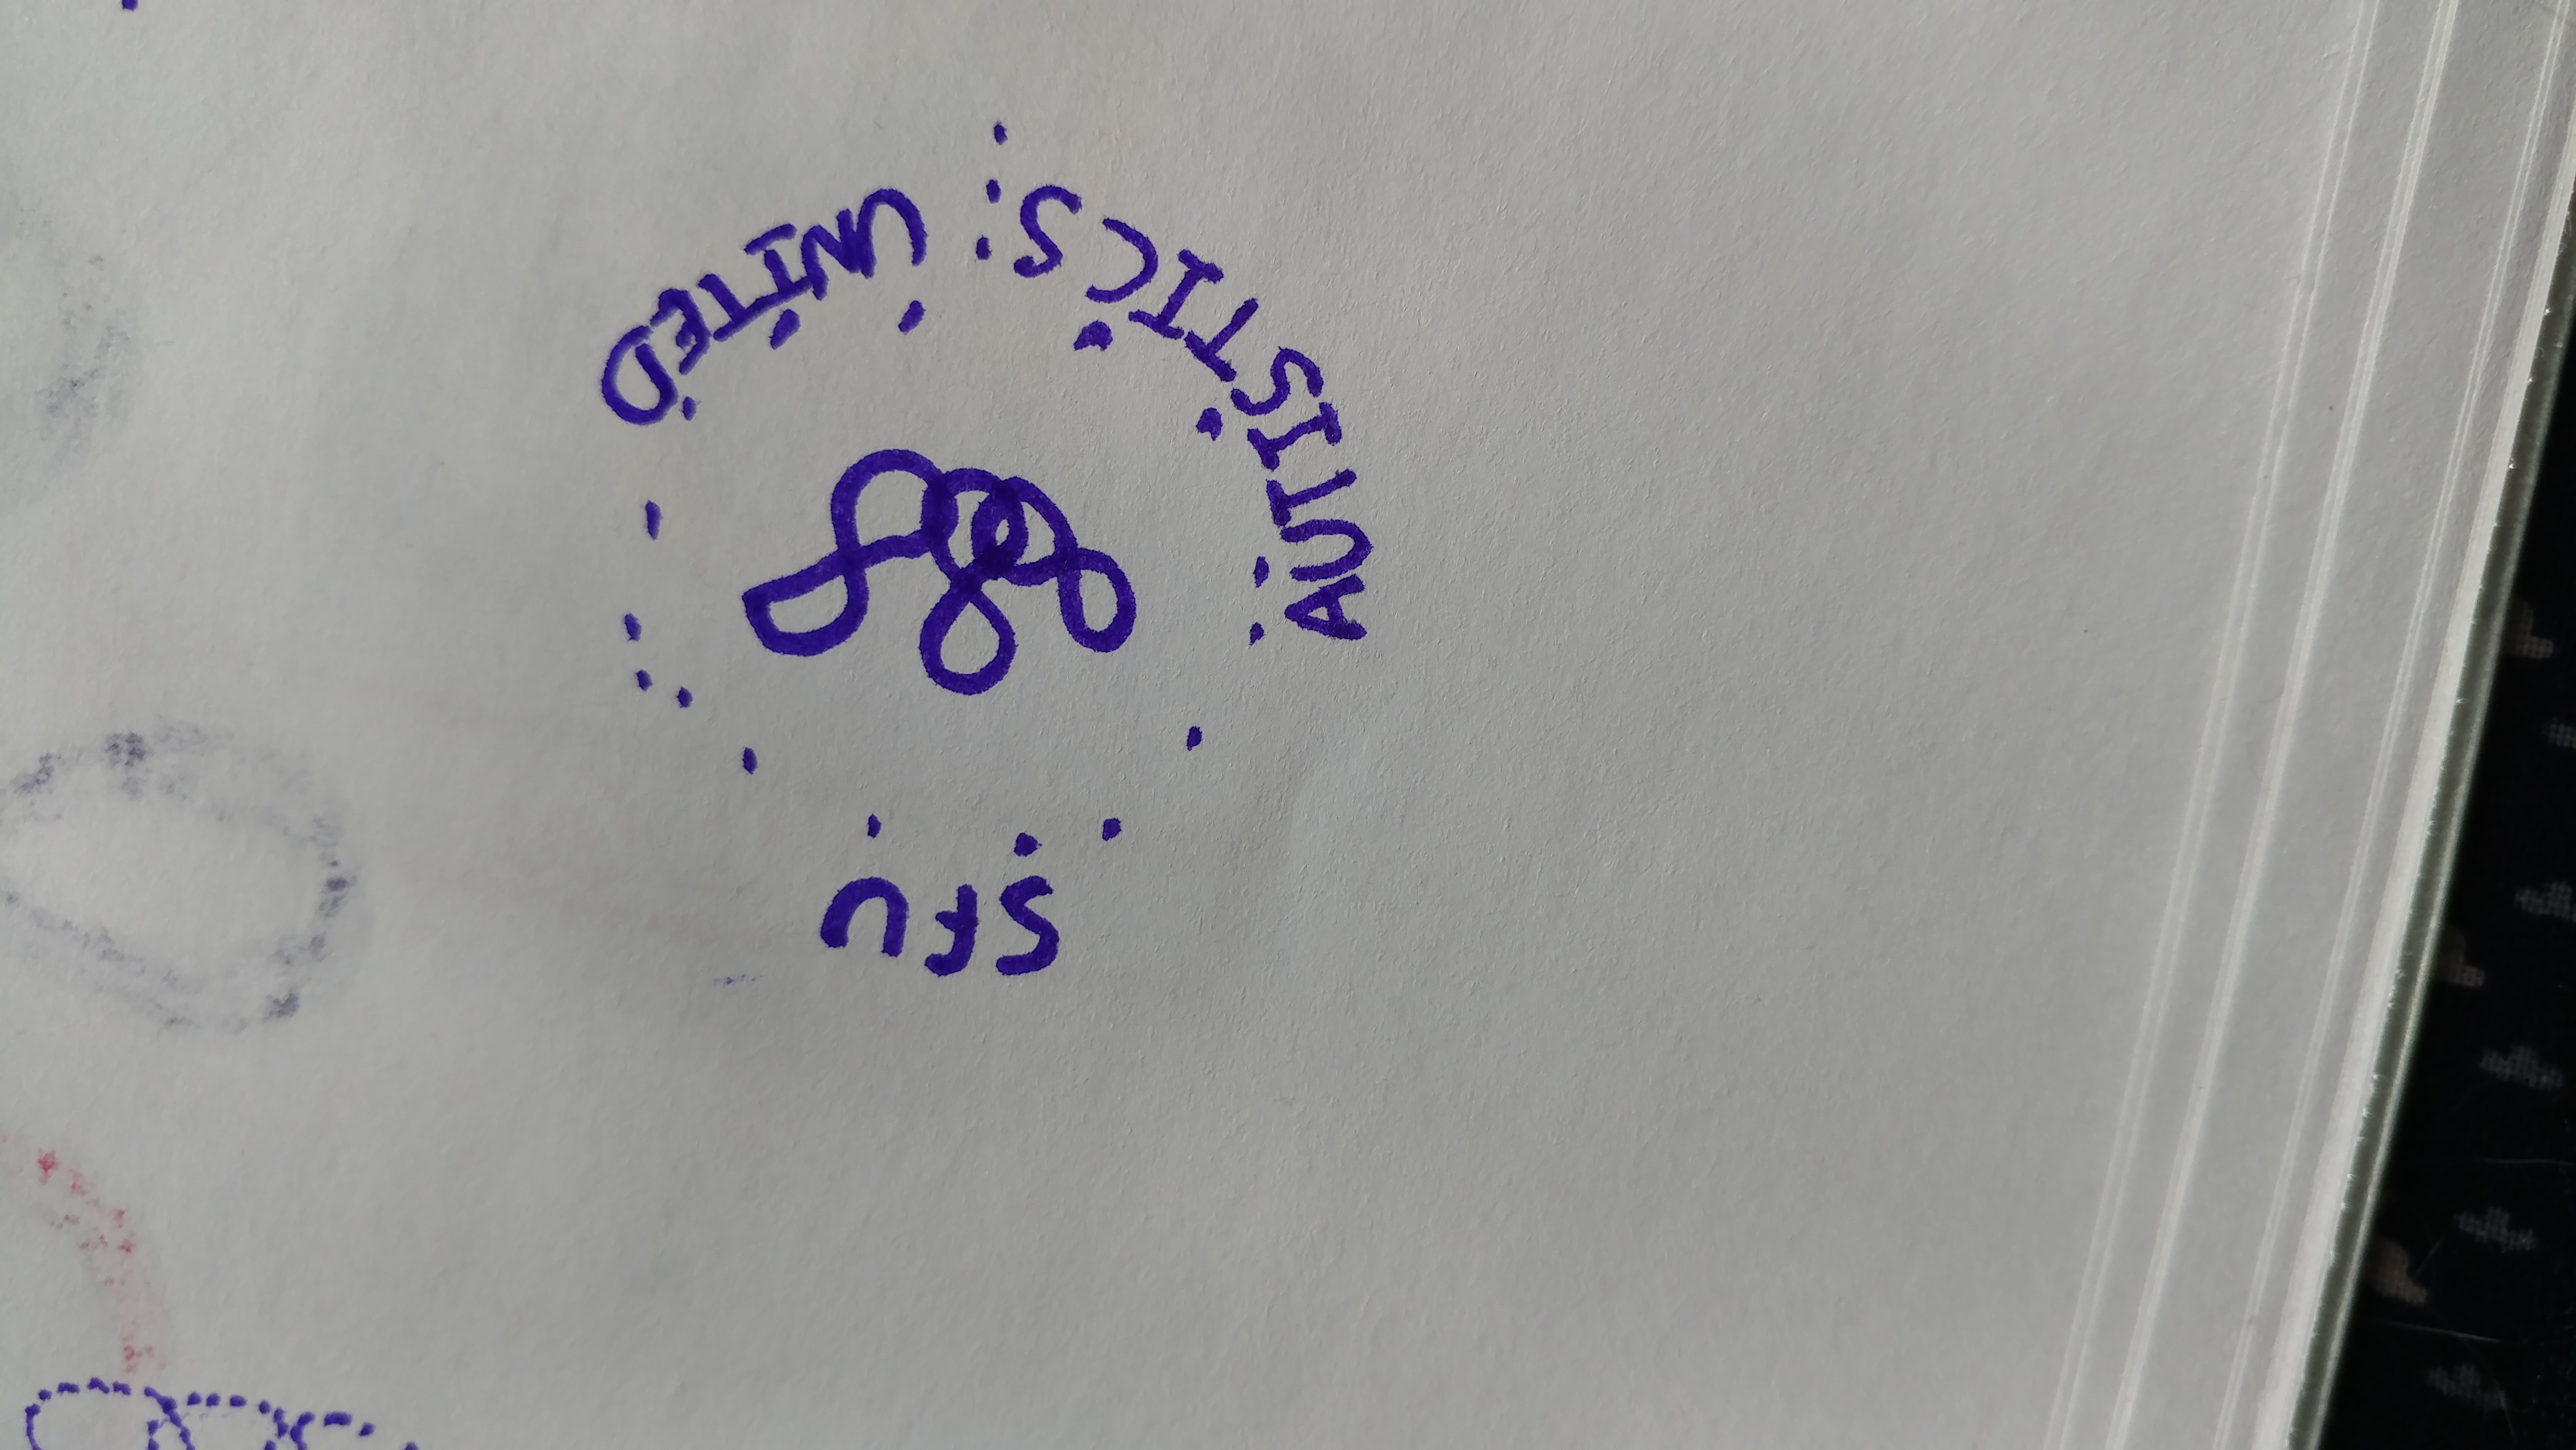 SFU
AUTISTICS UNITED